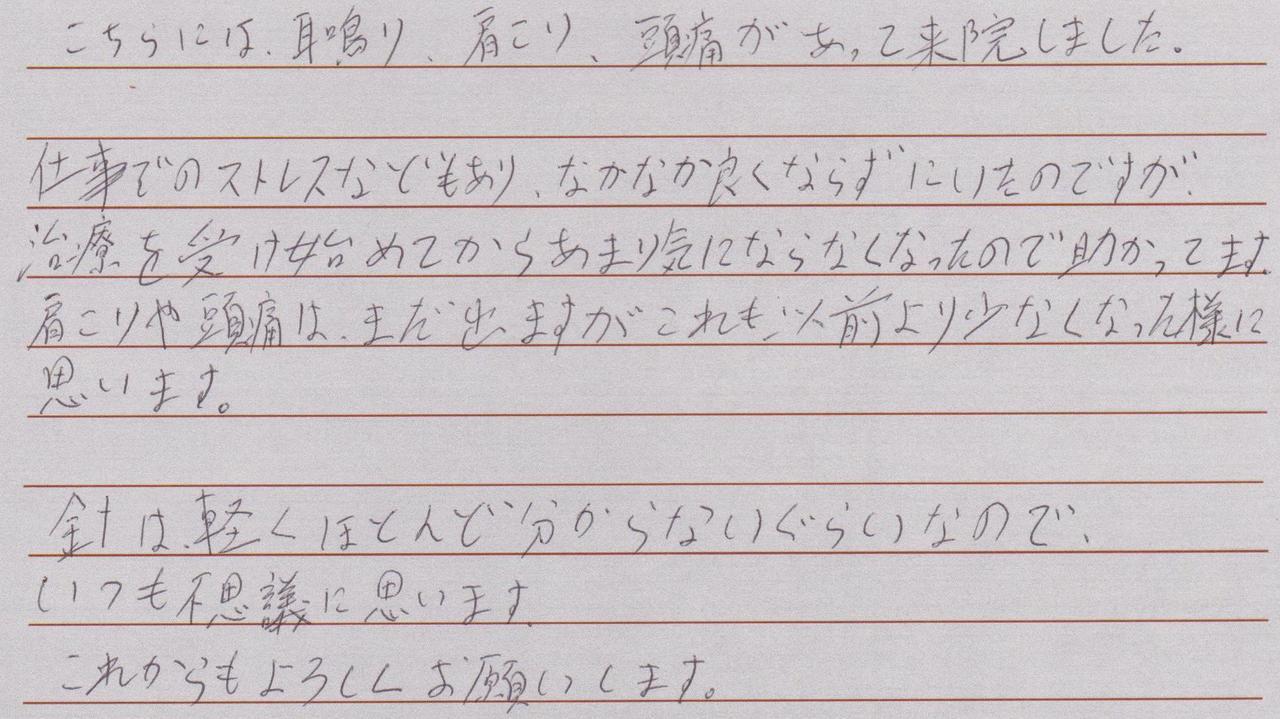 こちらには、耳鳴り、肩こり、頭痛があって来院しました。
仕事でのストレスなどもあり、なかなか良くならずにいたのですが、
治療を受け始めてからあまり気にならなくなったので助かってます。
肩こりや頭痛は、まだ出ますがこれも以前より少なくなった様に
思います。
針は、軽くほとんど分からないぐらいなので、
いつも不思議に思います。
これからもよろしくお願いします。